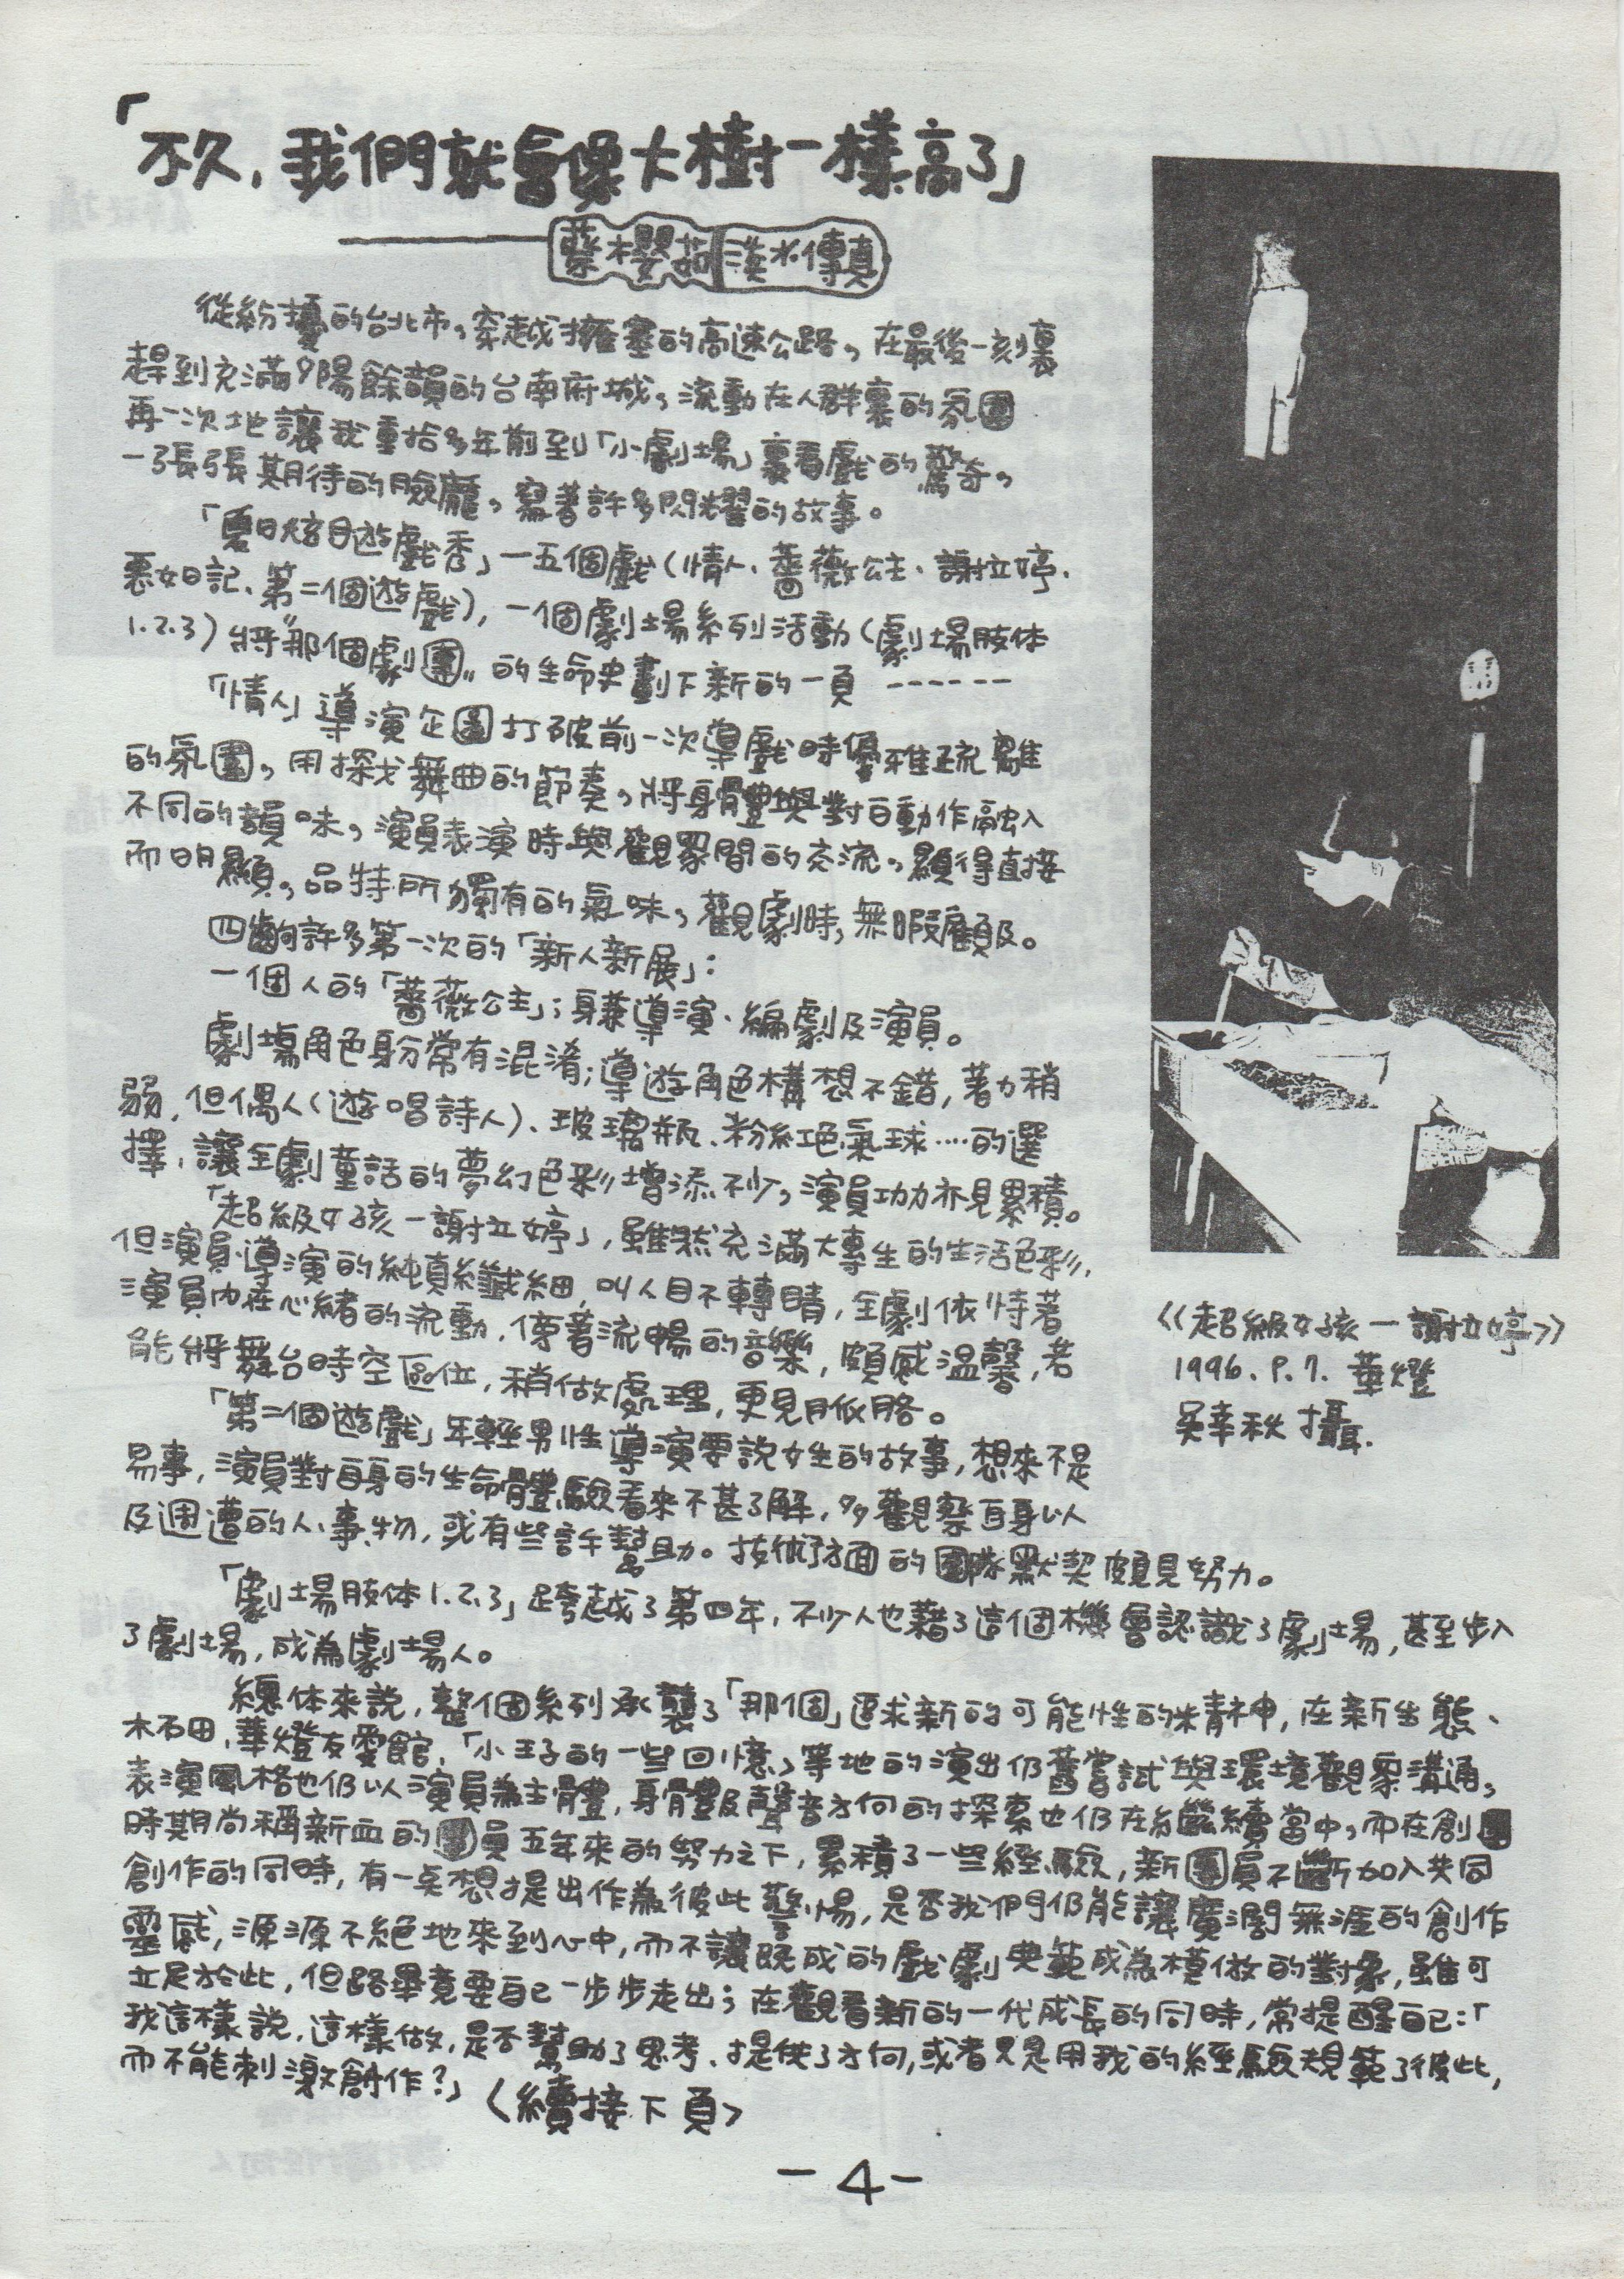 「不久，我們就會像大樹一樣高了」
蔡櫻茹 淡水傳真
從紛擾的台北市，穿越擁塞的高速公路，在最後一刻裏
趕到充滿夕陽餘韻的台南府城，流動在人群裏的氛圍
再一次地讓我重拾多年前到「小劇場」裏看戲的驚奇，
一張張期待的臉龐，寫著許多閃耀的故事。
「夏日炫目遊戲秀」一五個戲（情人、薔薇公主、謝拉婷、
惡女日記、第二個遊戲），一個劇場系列活動（劇場肢体
1.2.3）將“那個劇團”的生命史劃下新的一頁 ------
「情人」導演企圖打破前一次導戲時優雅疏離
的氛圍，用探戈舞曲的節奏，將身體與對白動作融入
不同的韻味，演員表演時與觀眾間的交流，顯得直接
而明顯，品特所獨有的氣味，觀劇時，無暇顧及。
四齣許多第一次的「新人新展」：
一個人的「薔薇公主」；身兼導演、編劇及演員。
劇場角色身分常有混淆；導遊角色構想不錯，著力稍
弱，但偶人（遊唱詩人）、玻璃瓶、粉紅色氣球‥‥的選
擇，讓全劇童話的夢幻色彩增添不少，演員功力亦見累積。
「超級女孩一謝拉婷」，雖然充滿大專生的生活色彩，
但演員、導演的純真纖細，叫人目不轉睛，全劇依恃著
演員內在心緒的流動，傍著流暢的音樂，頗感溫馨，若
能將舞台時空區位，稍做處理，更見脈胳。
「第二個遊戲」年輕男性導演要說女生的故事，想來不是
易事，演員對自身的生命體驗看來不甚了解，多觀察自身以
及週遭的人、事、物，或有些許幫助。技術方面的團隊默契頗見努力。
「劇場肢体1.2.3」跨越了第四年，不少人也藉了這個機會認識了劇場，甚至步入
了劇場，成為劇場人。
總体來說，整個系列承襲了「那個」追求新的可能性的精神，在新生態、
木石田、華燈友愛館、「小王子的一些回憶」等地的演出仍舊嘗試與環境觀眾溝通，
表演風格也仍以演員為主體，身體及聲音方向的探索也仍在繼續當中，而在創團
時期尚稱新血的團員五年來的努力之下，累積了一些經驗，新團員不斷加入共同
創作的同時，有一点想提出作為彼此警惕，是否我們仍能讓廣濶無涯的創作
靈感，源源不絕地來到心中，而不讓既成的戲劇典範成為模倣的對象，雖可
立足於此，但路畢竟要自己一步步走出；在觀看新的一代成長的同時，常提醒自己：「
我這樣說，這樣做，是否幫助了思考、提供了方向，或者只是用我的經驗規範了彼此，
而不能刺激創作？」〈續接下頁〉
《超級女孩一謝拉婷》
1996.9.7. 華燈
吳幸秋 攝.
-4-